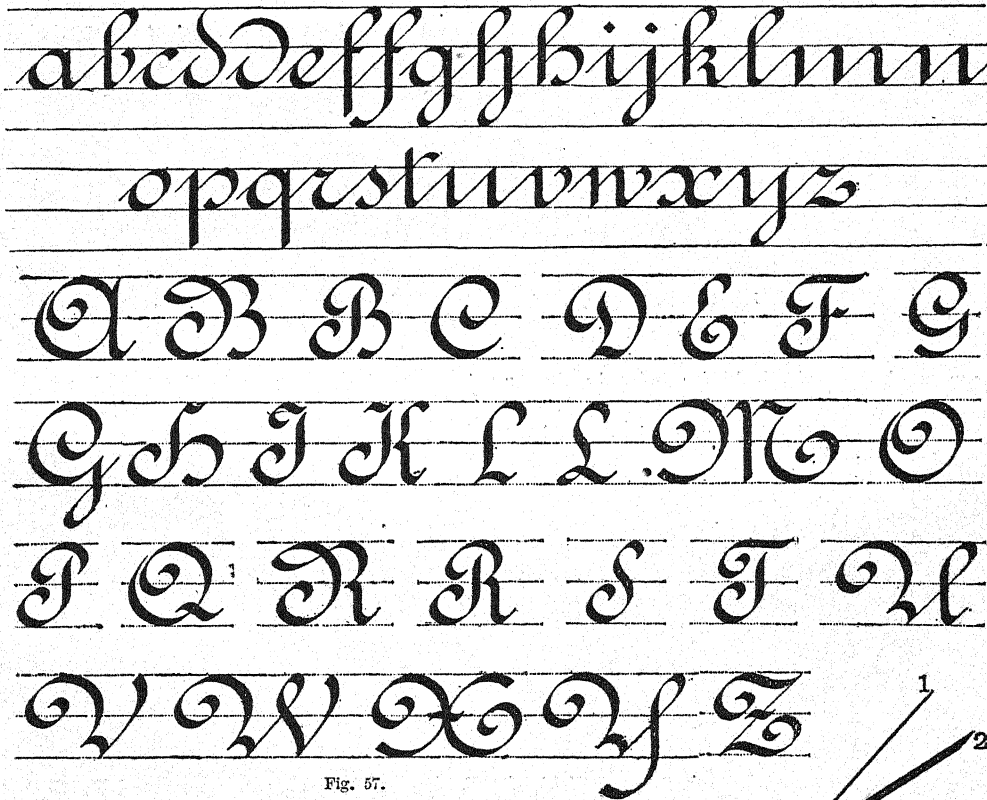 a b c d d e f f g h h i j k l m n
o p q r s t u v w x y z
A B B C D E F G
G H I K L L M O
P Q R R S T U
V W X Y Z
1
2
Fig. 57.